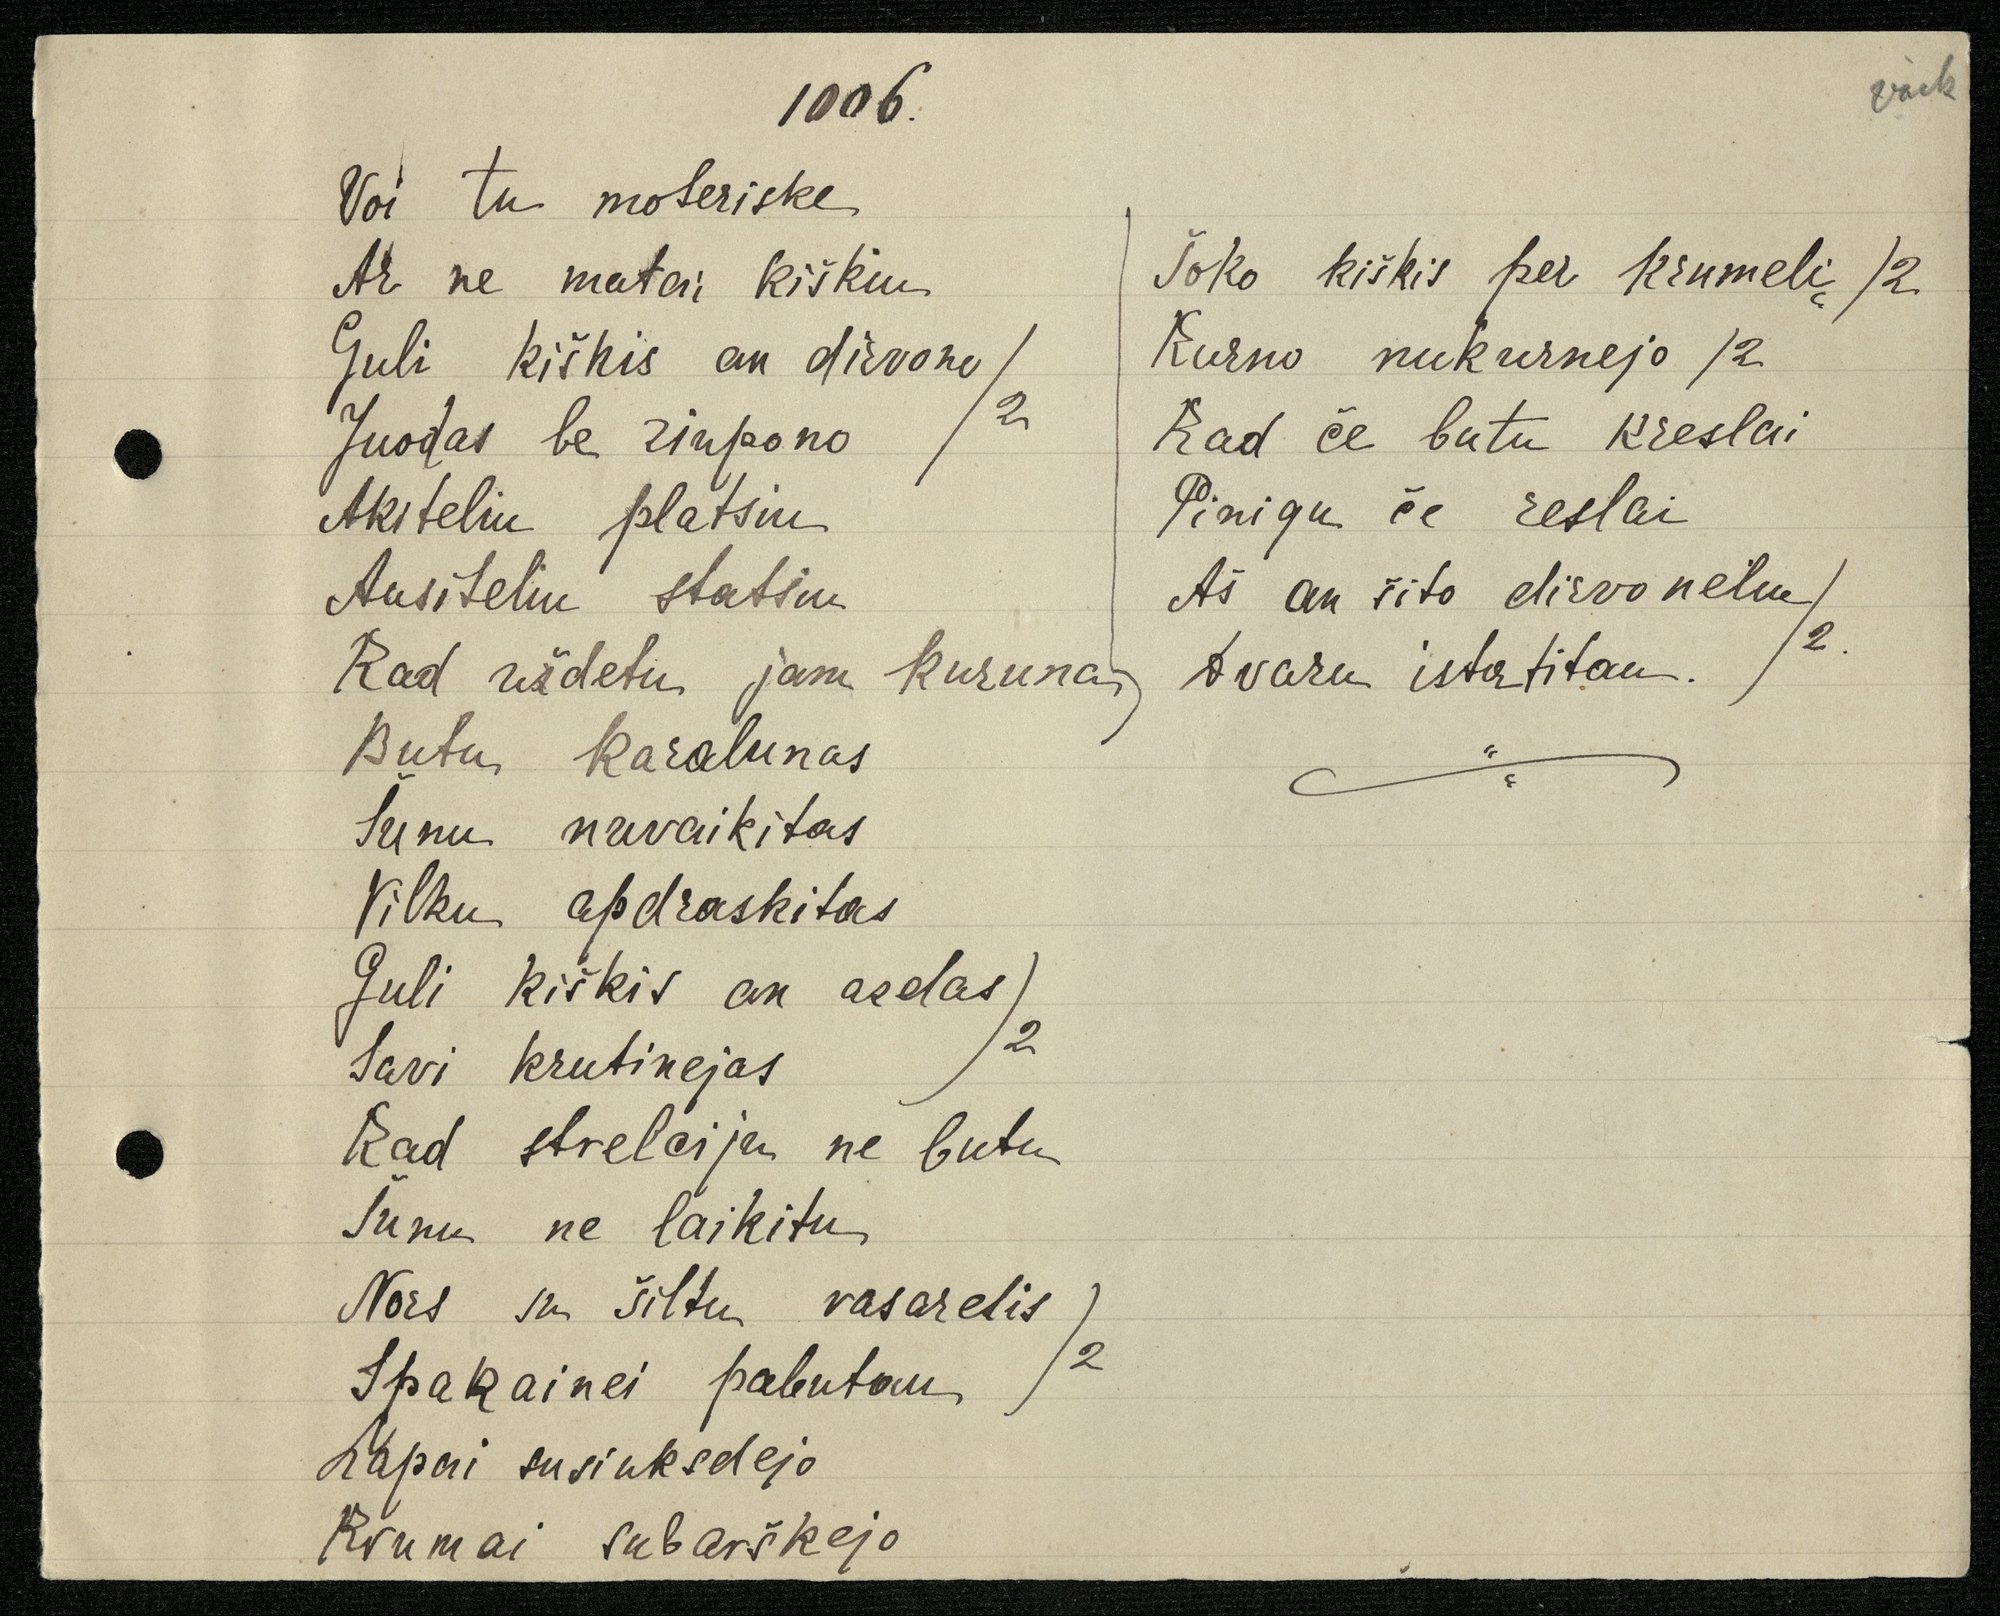 1006.
vask
Voi tu moteriske
Ar ne matai kiškiu
Guli kiškis an dirvono /
Juodas be zinpono /2
Akiteliu platsiu
Ausiteliu statsiu
Kad uždetu jam kuruna
Butu karalunas
Šunu nuvaikitas
Vilku apdraskitas
Guli kiškis an azdas
Savi krutinejas /2
Kad strelciju ne butu
Šunu ne laikitu
Nors su šiltu vasarelis
Spakainei pabutau /2
Lapai susiuksdejo
Krumai subarškejo
Šoko kiškis per krumeli /2
Kurno nukurnejo /2
Kad če butu kreslai
Pinigu če reslai
Aš an šito dirvoneliu
tvaru istatitau. /2.